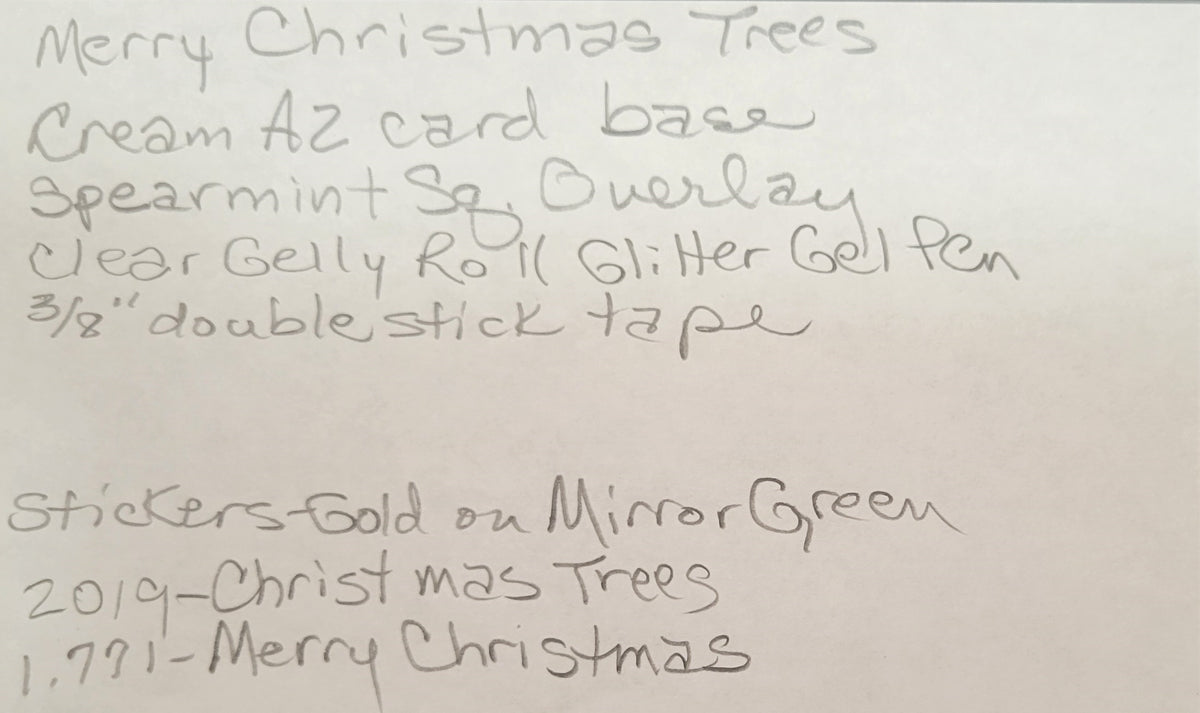 Merry Christmas Trees
Cream A2 card base
Spearmint Sq. Overlay
Clear Gelly Roll Glitter Gel Pen
3/8" double stick tape
Stickers-Gold on Mirror Green
2019-Christmas Trees
1.771-Merry Christmas